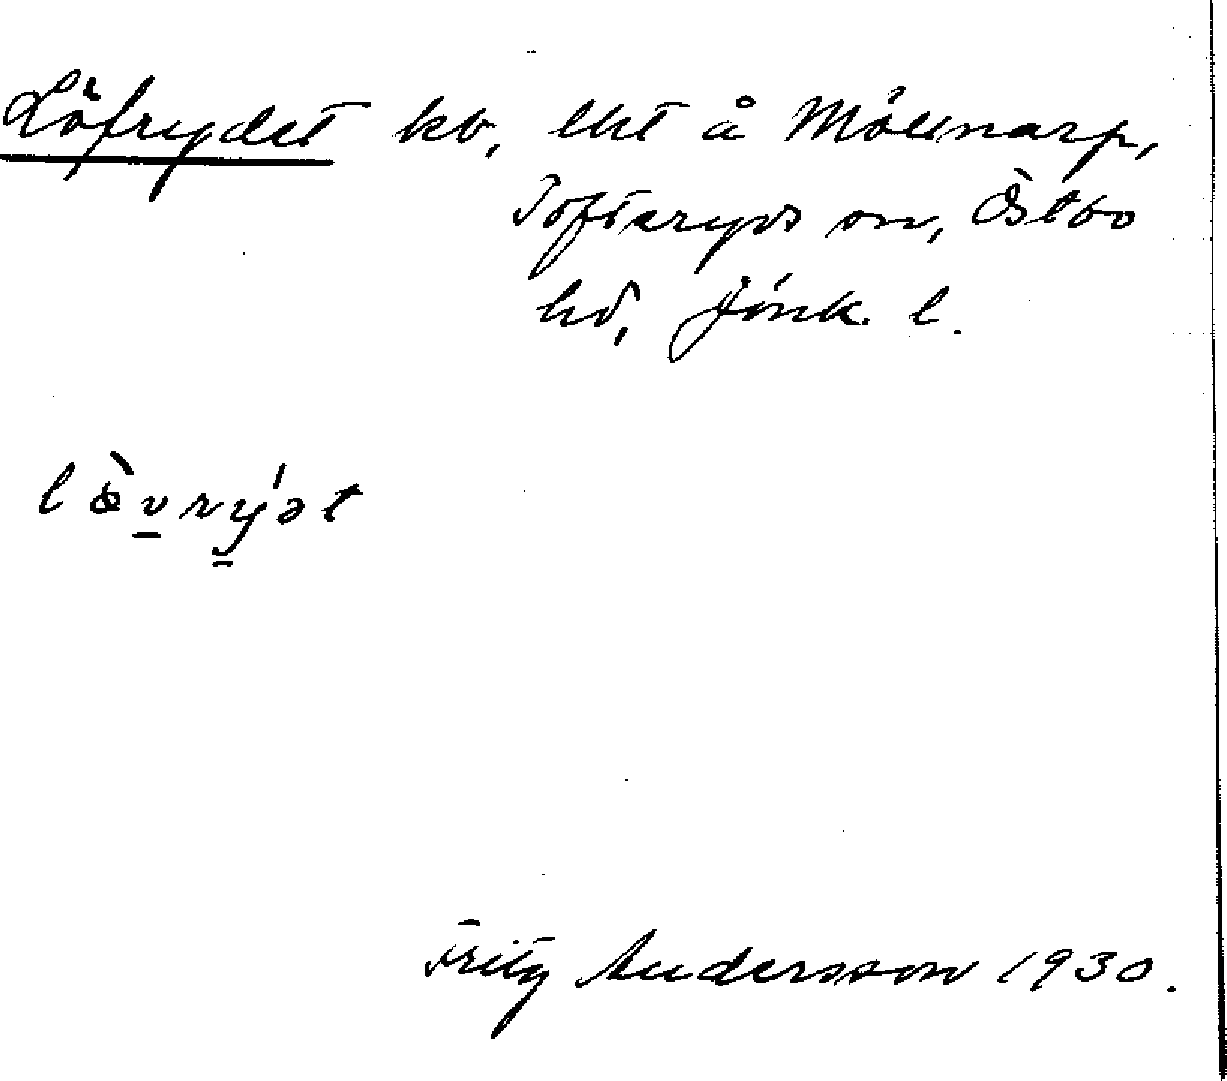 Löfrydet kv, lht å Möllnarp,
Tofteryds sn, Östbo
hd, Jönk. l.
lövrydət
Fritz Andersson 1930.